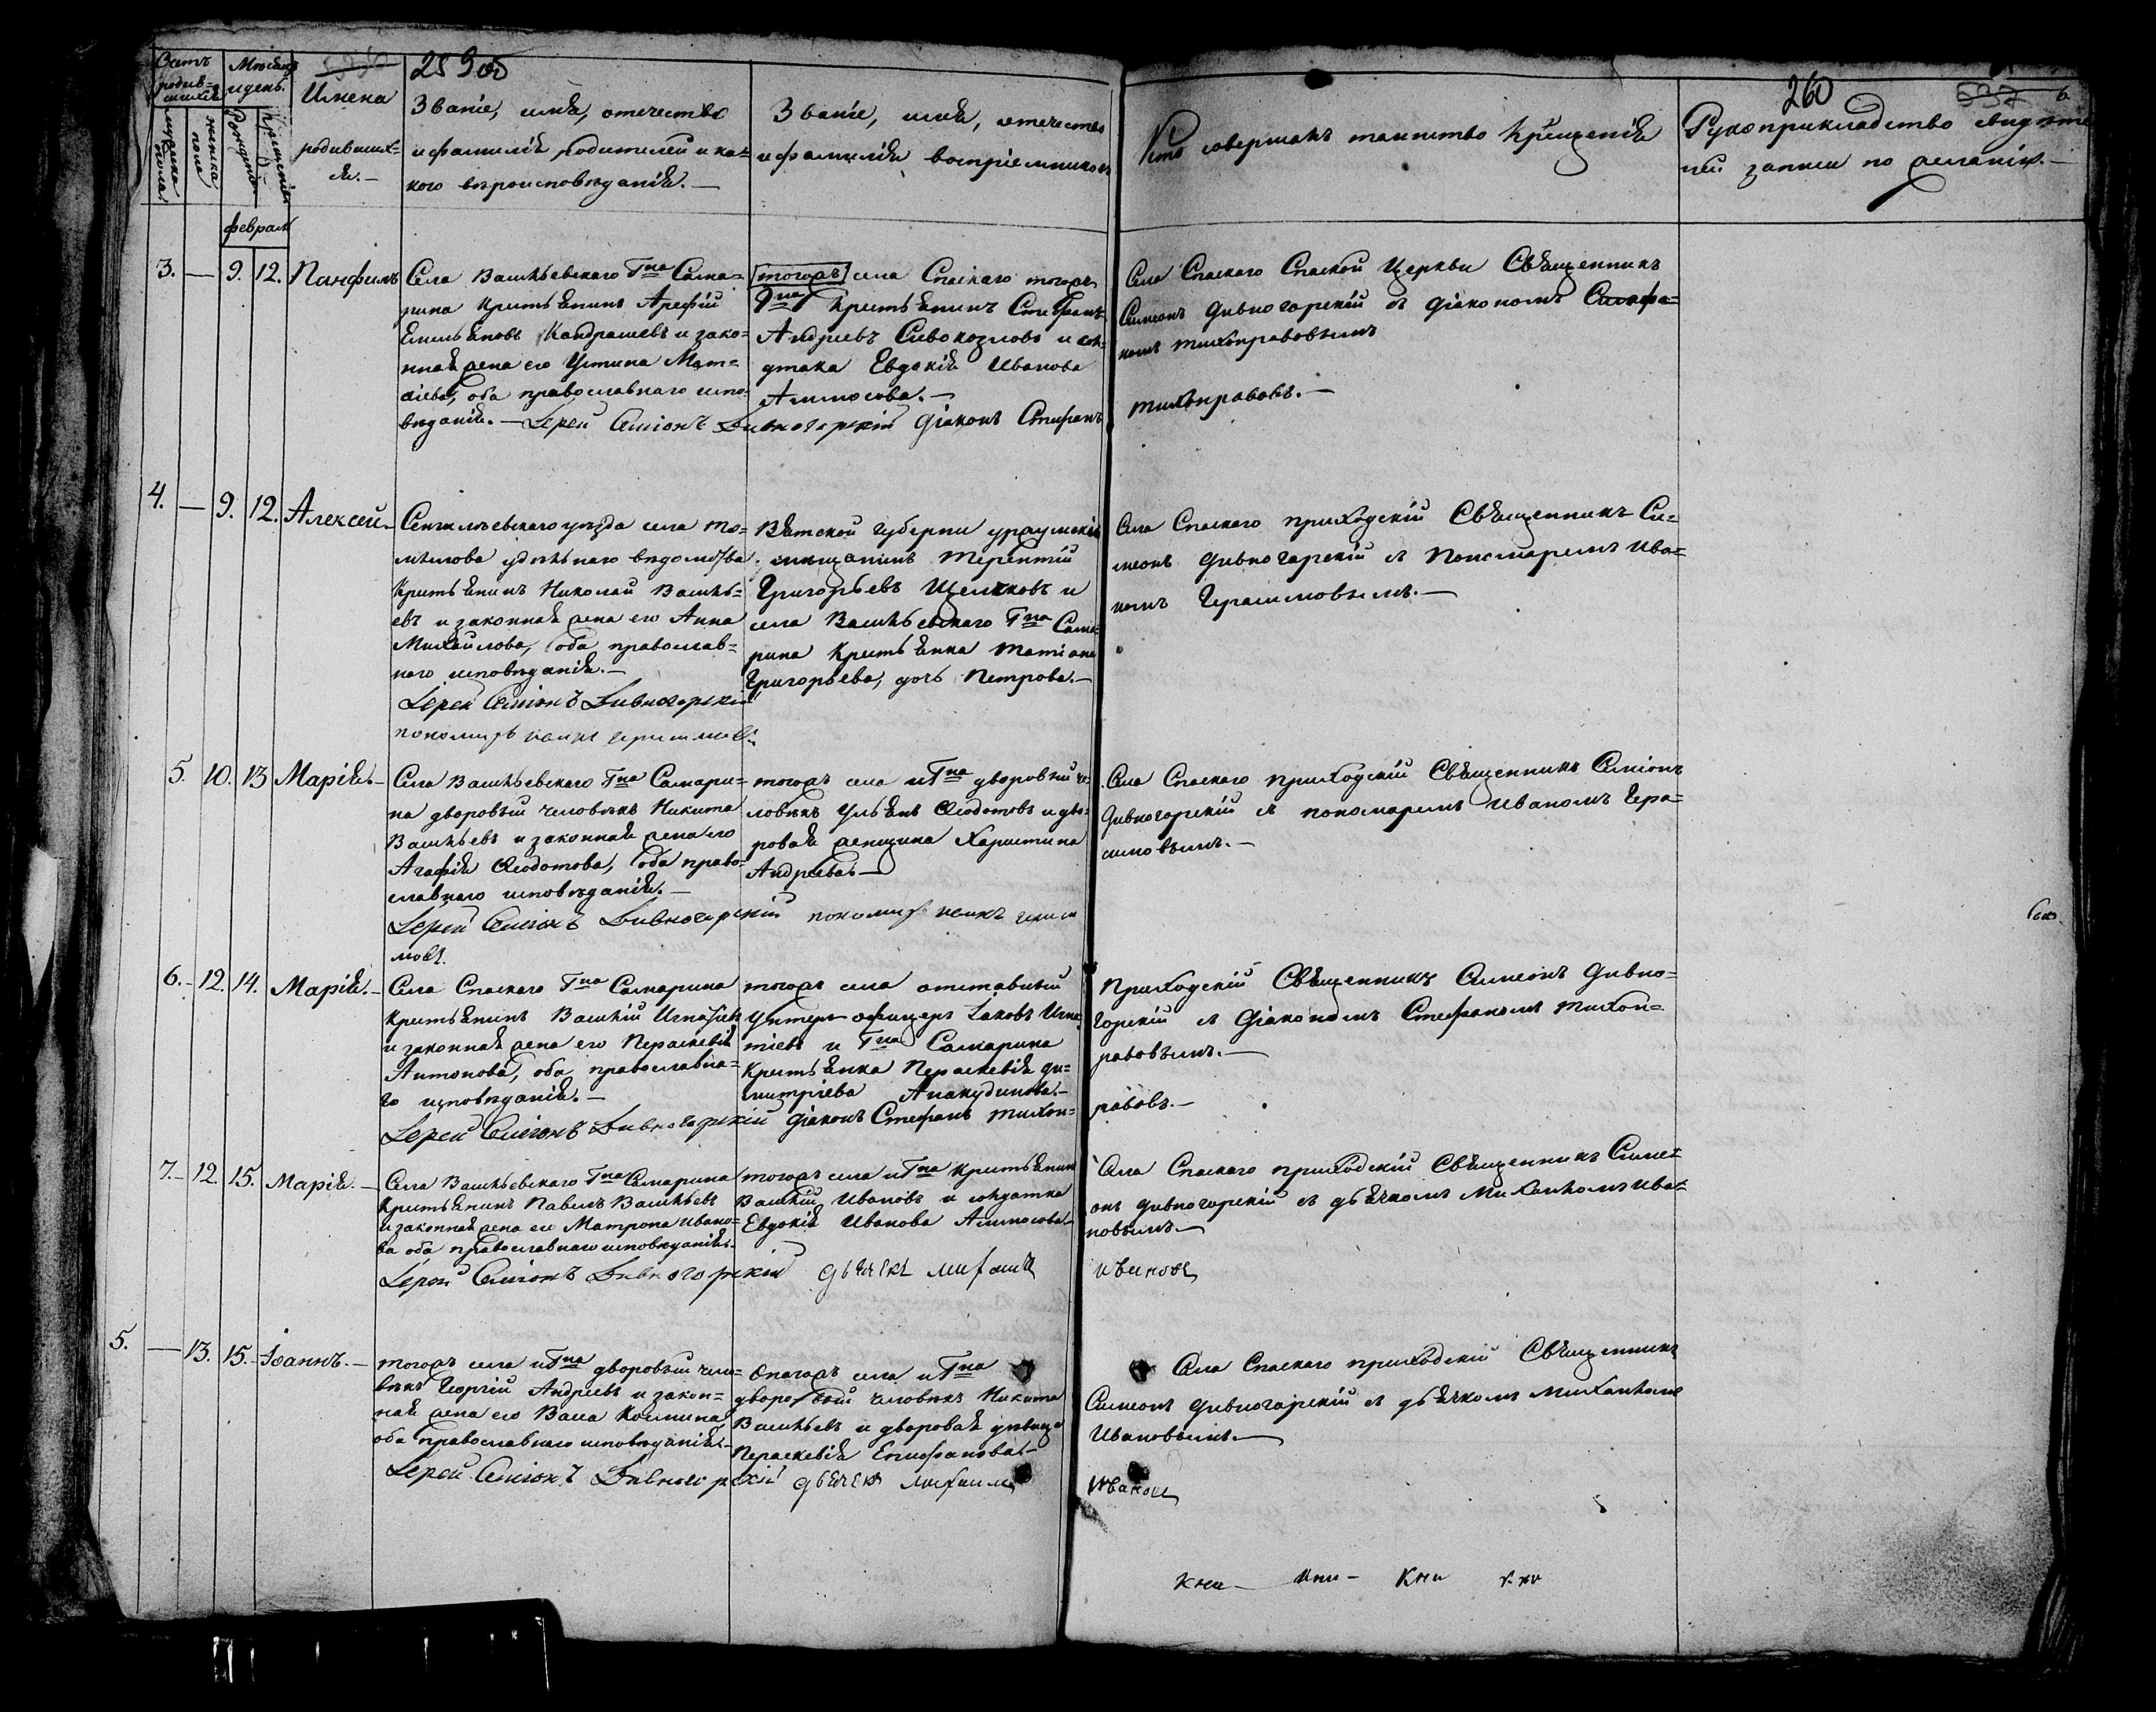 259об
260
Счетъ родив-
шихся
Мѣсяцъ
и день.
мужеска
пола
женска
пола
Рожденія
Крещенія
Имена
родивших-
ся.—
Званіе, имя, отечество
и фамилія родителей и ка-
кого вѣроисповѣданія.—
Званіе, имя, отечество
и фамилія воспріемниковъ
Кто совершалъ таинство крещенія
Рукоприкладство свидѣте
лей записи по желанію.—
Февраль
3. — 9. 12. Панфилъ
Села Васильевскаго Гна Сама-
рина крестьянинъ Арефій
Емельяновъ Кандрашевъ и зако-
нная жена его Устина Мат-
ѳіева, оба православнаго испо-
вѣданія. — Іерей Симіонъ Дивногорскій Діаконъ Стефанъ
тогожъ села Спаскаго тогожъ
Гна крестьянинъ Стефанъ
Андреевъ Сивокозловъ и сол-
датка Евдокія Иванова
Аммосова.—
Села Спаскаго Спаской Церкви Священникъ
Симеонъ Дивногорскій съ Діакономъ Стефа-
номъ Тихонравовымъ
Тихонравовъ.—
4. — 9. 12. Алексей.—
Сенгилѣевскаго уѣзда села То-
мылова удѣльнаго вѣдомства
крестьянинъ Николай Василь-
евъ и законная жена его Анна
Михайлова, оба православ-
наго исповѣданія.—
Іерей Симіонъ Дивногорскій
пономарь Иванъ Герасимовъ
Вятской губерни уржумскій
мещанинъ Терентій
Григорьевъ Щелковъ и
села Васильевскаго Гна Сама-
рина крестьянка Татіана
Григорьева, дочь Петрова.—
Села Спаскаго приходскій Священникъ Си-
меонъ Дивногорскій съ Пономаремъ Ива-
номъ Герасимовымъ.—
5. 10. 13 Марія.—
Села Васильевскаго Гна Самари-
на дворовый человѣкъ Никита
Васильевъ и законная жена его
Агафія Ѳедотова, оба право-
славнаго исповѣданія.—
Іерей Симіонъ Дивногорскій пономарь Иванъ Гераси
мовъ.
тогожъ села и Гна дворовый че-
ловѣкъ Ульянъ Ѳедотовъ и дво-
ровая женщина Харистина
Андреева.—
Села Спаскаго приходскій Священникъ Симіонъ
Дивногорскій съ пономаремъ Иваномъ Гера-
симовымъ.—
6. — 12. 14. Марія.—
Села Спаскаго Гна Самарина
крестьянинъ Василій Игнатіевъ
и законная жена его Пераскевія
Антонова, оба православна-
го исповѣданія.—
Іерей Симіонъ Дивногорскій Діаконъ Стефанъ Тихон-
тогожъ села отставный
Унтеръ-офицеръ Іаковъ Игна-
тіевъ и Гна Самарина
крестьянка Пераскевія Ди-
митріева Анакудинова.—
Приходскій Священникъ Симеонъ Дивно-
горскій съ Діакономъ Стефаномъ Тихон-
равовымъ.—
равовъ.—
7. — 12. 15. Марія.—
Села Васильевскаго Гна Самарина
крестьянинъ Павелъ Васильевъ
и законная жена его Матрона Ивано-
ва оба православнаго исповѣданія.
Іерей Симіонъ Дивногорскій дьячекъ Михаилъ
тогожъ села и Гна крестьянинъ
Василій Ивановъ и солдатка
Евдокія Иванова Аммосова.—
Села Спаскаго приходскій Священникъ Симе-
онъ Дивногорскій съ дьячкомъ Михаиломъ Ива-
новымъ.—
Ивановъ
5. — 13. 15. Іоаннъ.—
тогожъ села и Гна дворовый чело-
вѣкъ Георгій Андреевъ и закон-
ная жена его Васа Космина,
оба православнаго исповѣданія.—
Іерей Симіонъ Дивногорскій дьячекъ Михаилъ
Онагожъ села и Гна
дворовый человѣкъ Никита
Васильевъ и дворовая дѣвица
Пераскевія Епифанова.—
Села Спаскаго приходскій Священникъ
Симеонъ Дивногорскій съ дьячкомъ Михаиломъ
Ивановымъ.—
Ивановъ